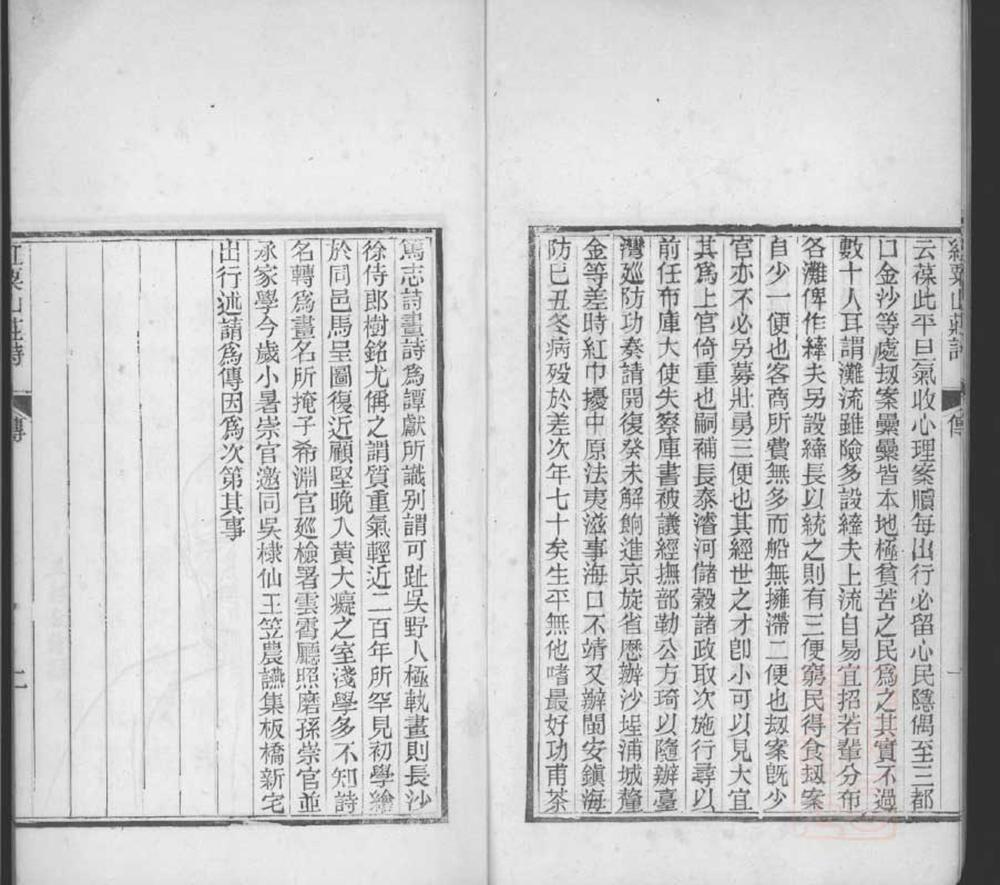 紅粟山莊詩
傳
一
云葆此平旦氣收心理案牘每出行必留心民隱偶至三都
口金沙等處刼案纍纍皆本地極貧苦之民爲之其實不過
數十人耳謂灘流雖險多設縴夫上流自易宜招若輩分布
各灘俾作縴夫另設縴長以統之則有三便窮民得食刼案
自少一便也客商所費無多而船無擁滯二便也刼案旣少
官亦不必另募壯勇三便也其經世之才卽小可以見大宜
其爲上官倚重也嗣補長泰濬河儲穀諸政取次施行尋以
前任布庫大使失察庫書被議經撫部勒公方琦以隨辦臺
灣廵防功奏請開復癸未解餉進京旋省歷辦沙埕浦城釐
金等差時紅巾擾中原法夷滋事海口不靖又辦閩安鎭海
防已丑冬病殁於差次年七十矣生平無他嗜最好功甫茶
篤志詩畫詩爲譚獻所識别謂可趾吳野人極軌畫則長沙
徐侍郎樹銘尤偁之謂質重氣輕近二百年所罕見初學繪
於同邑馬呈圖復近顧堅晚入黄大癡之室淺學多不知詩
名轉爲畫名所掩子希淵官廵檢署雲霄廳照磨孫崇官並
承家學今歲小暑崇官邀同吳棣仙王笠農讌集板橋新宅
出行述請爲傳因爲次第其事
紅粟山莊詩
傳
二